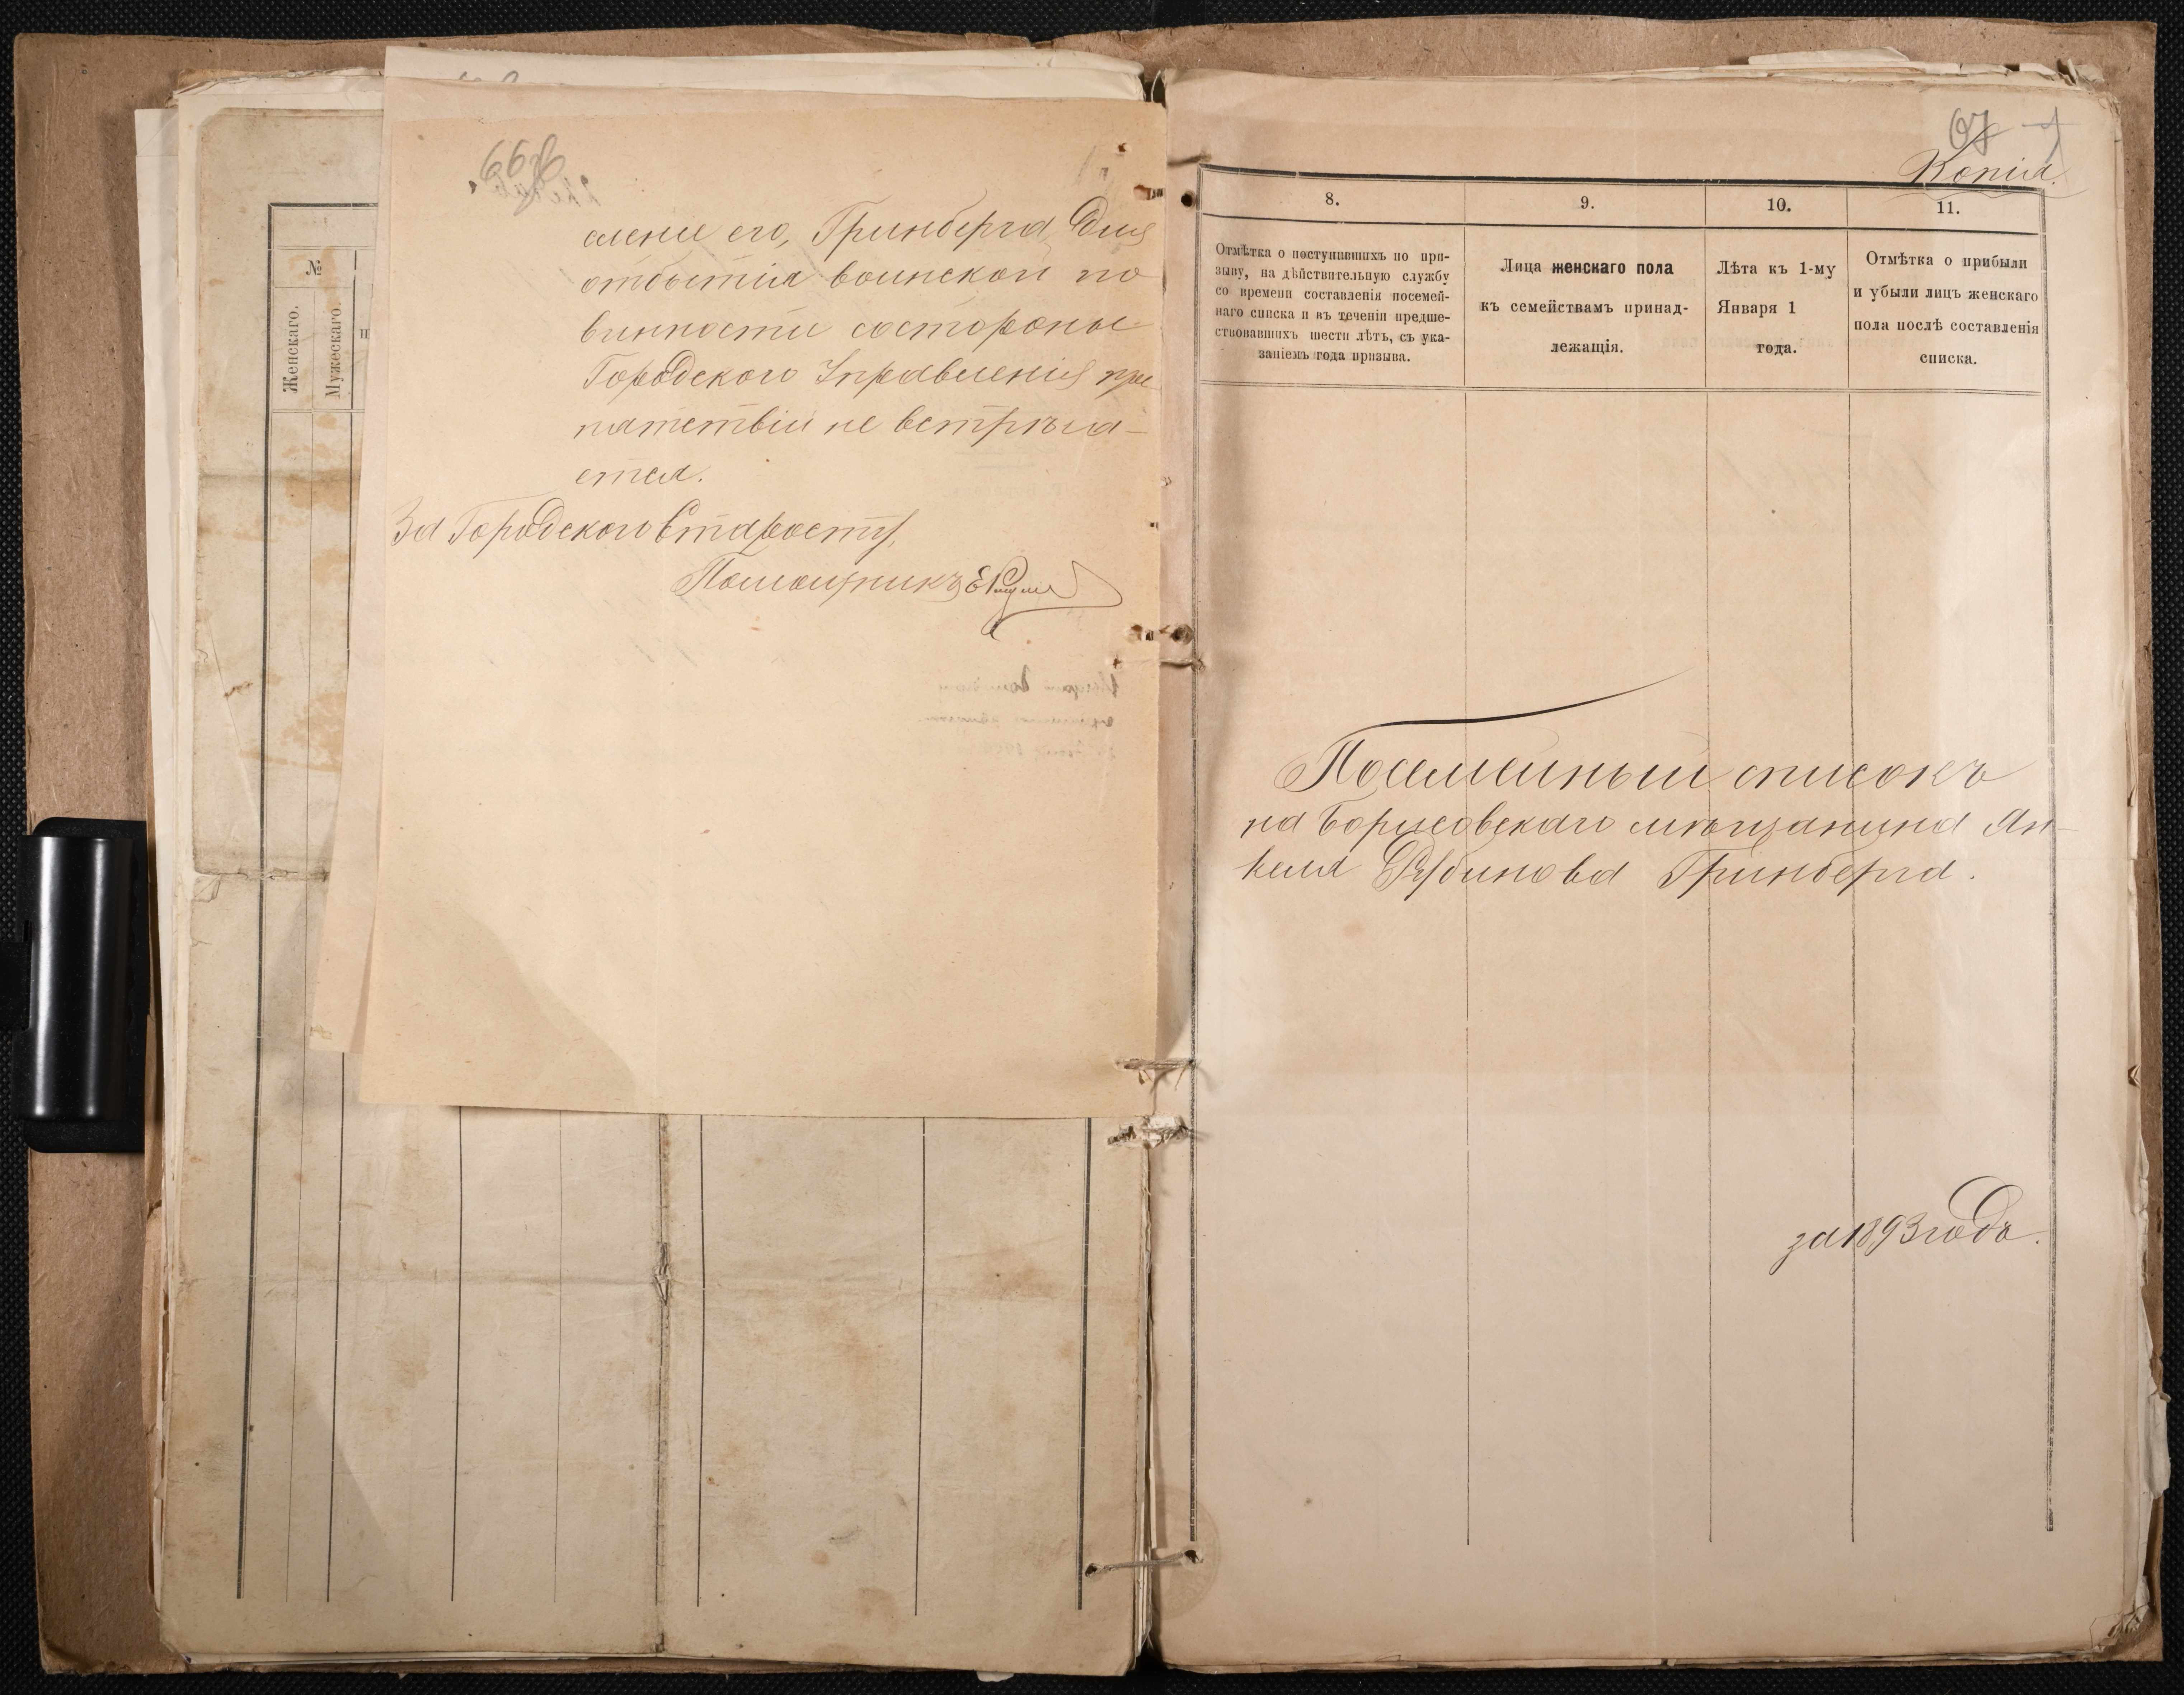 66
слени его, Гринберга, для
отбытія воинской по
винности состороны
Городского Управленія пре
пятствій не встрѣча-
ется.
За Городского Старосту,
Помощникъ
№
Женскаго.
Мужескаго.
67
Копія.
8.
9.
10.
11.
Отмѣтка о поступавшихъ по при-
зыву, на дѣйствительную службу
со времени составленія посемей-
наго списка и въ теченіи предше-
ствовавшихъ шести лѣтъ, съ ука-
заніемъ года призыва.
Лица женскаго пола
къ семействамъ принад-
лежащія.
Лѣта къ 1-му
Января 1
года.
Отмѣтка о прибыли
и убыли лицъ женскаго
пола послѣ составленія
списка.
Посемейный списокъ
на Борисовскаго мѣщанина Ян-
келя Рубинова Гринберга.
за 1893 годъ.